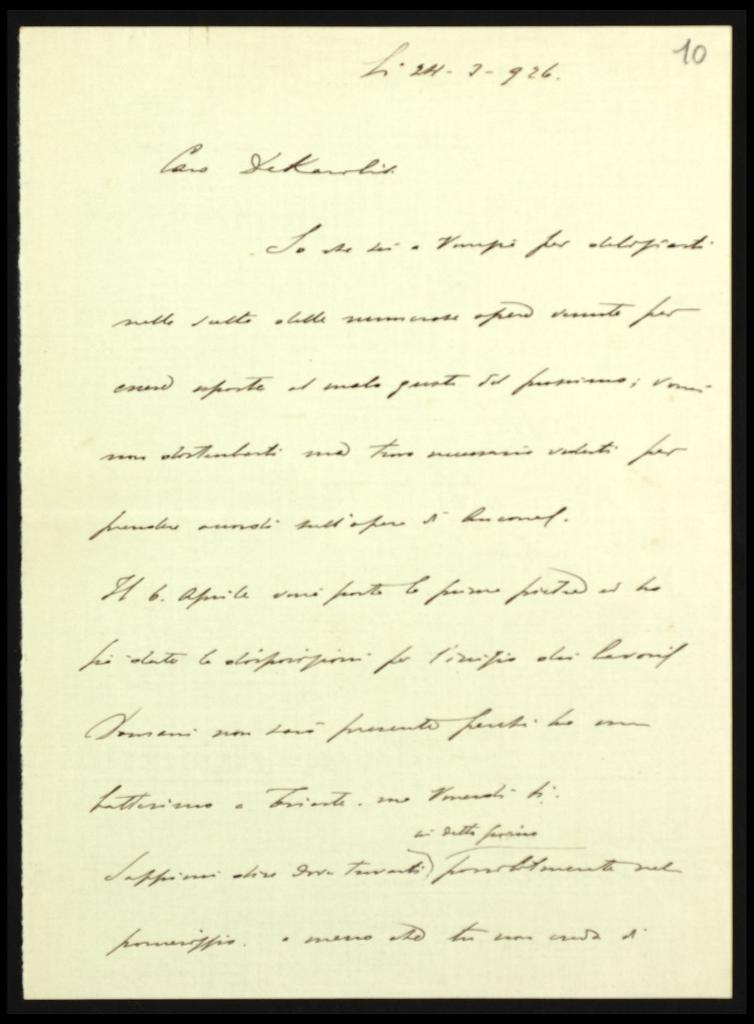 10
Li 24-3-926.
Caro DeKarolis.
So che sei a Venezia per deliziarti
nella scelta delle numerose opere venute per
essere esposte al malo gusto del prossimo; vorrei
non disturbarti ma trovo necessario vederti per
prendere accordi sull'opera di Ancona.
Il 6. Aprile verrà posta la prima pietra ed ho
già date le disposizioni per l'inizio dei lavori
Domani non sarò presente perchè ho un
battesimo a Trieste. ma Venerdì sì.
in detto giorno
Sappimi dire dove trovarti possibilmente nel
pomeriggio. a meno che tu non creda di